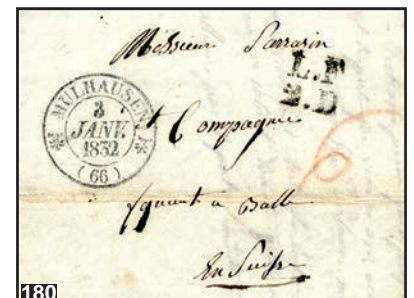 Messieurs Sarrasin
L.F
2.D
MULHAUSEN
3
JANV.
1832
(66)
et Compagnie
à Balle
En Suisse
6
180